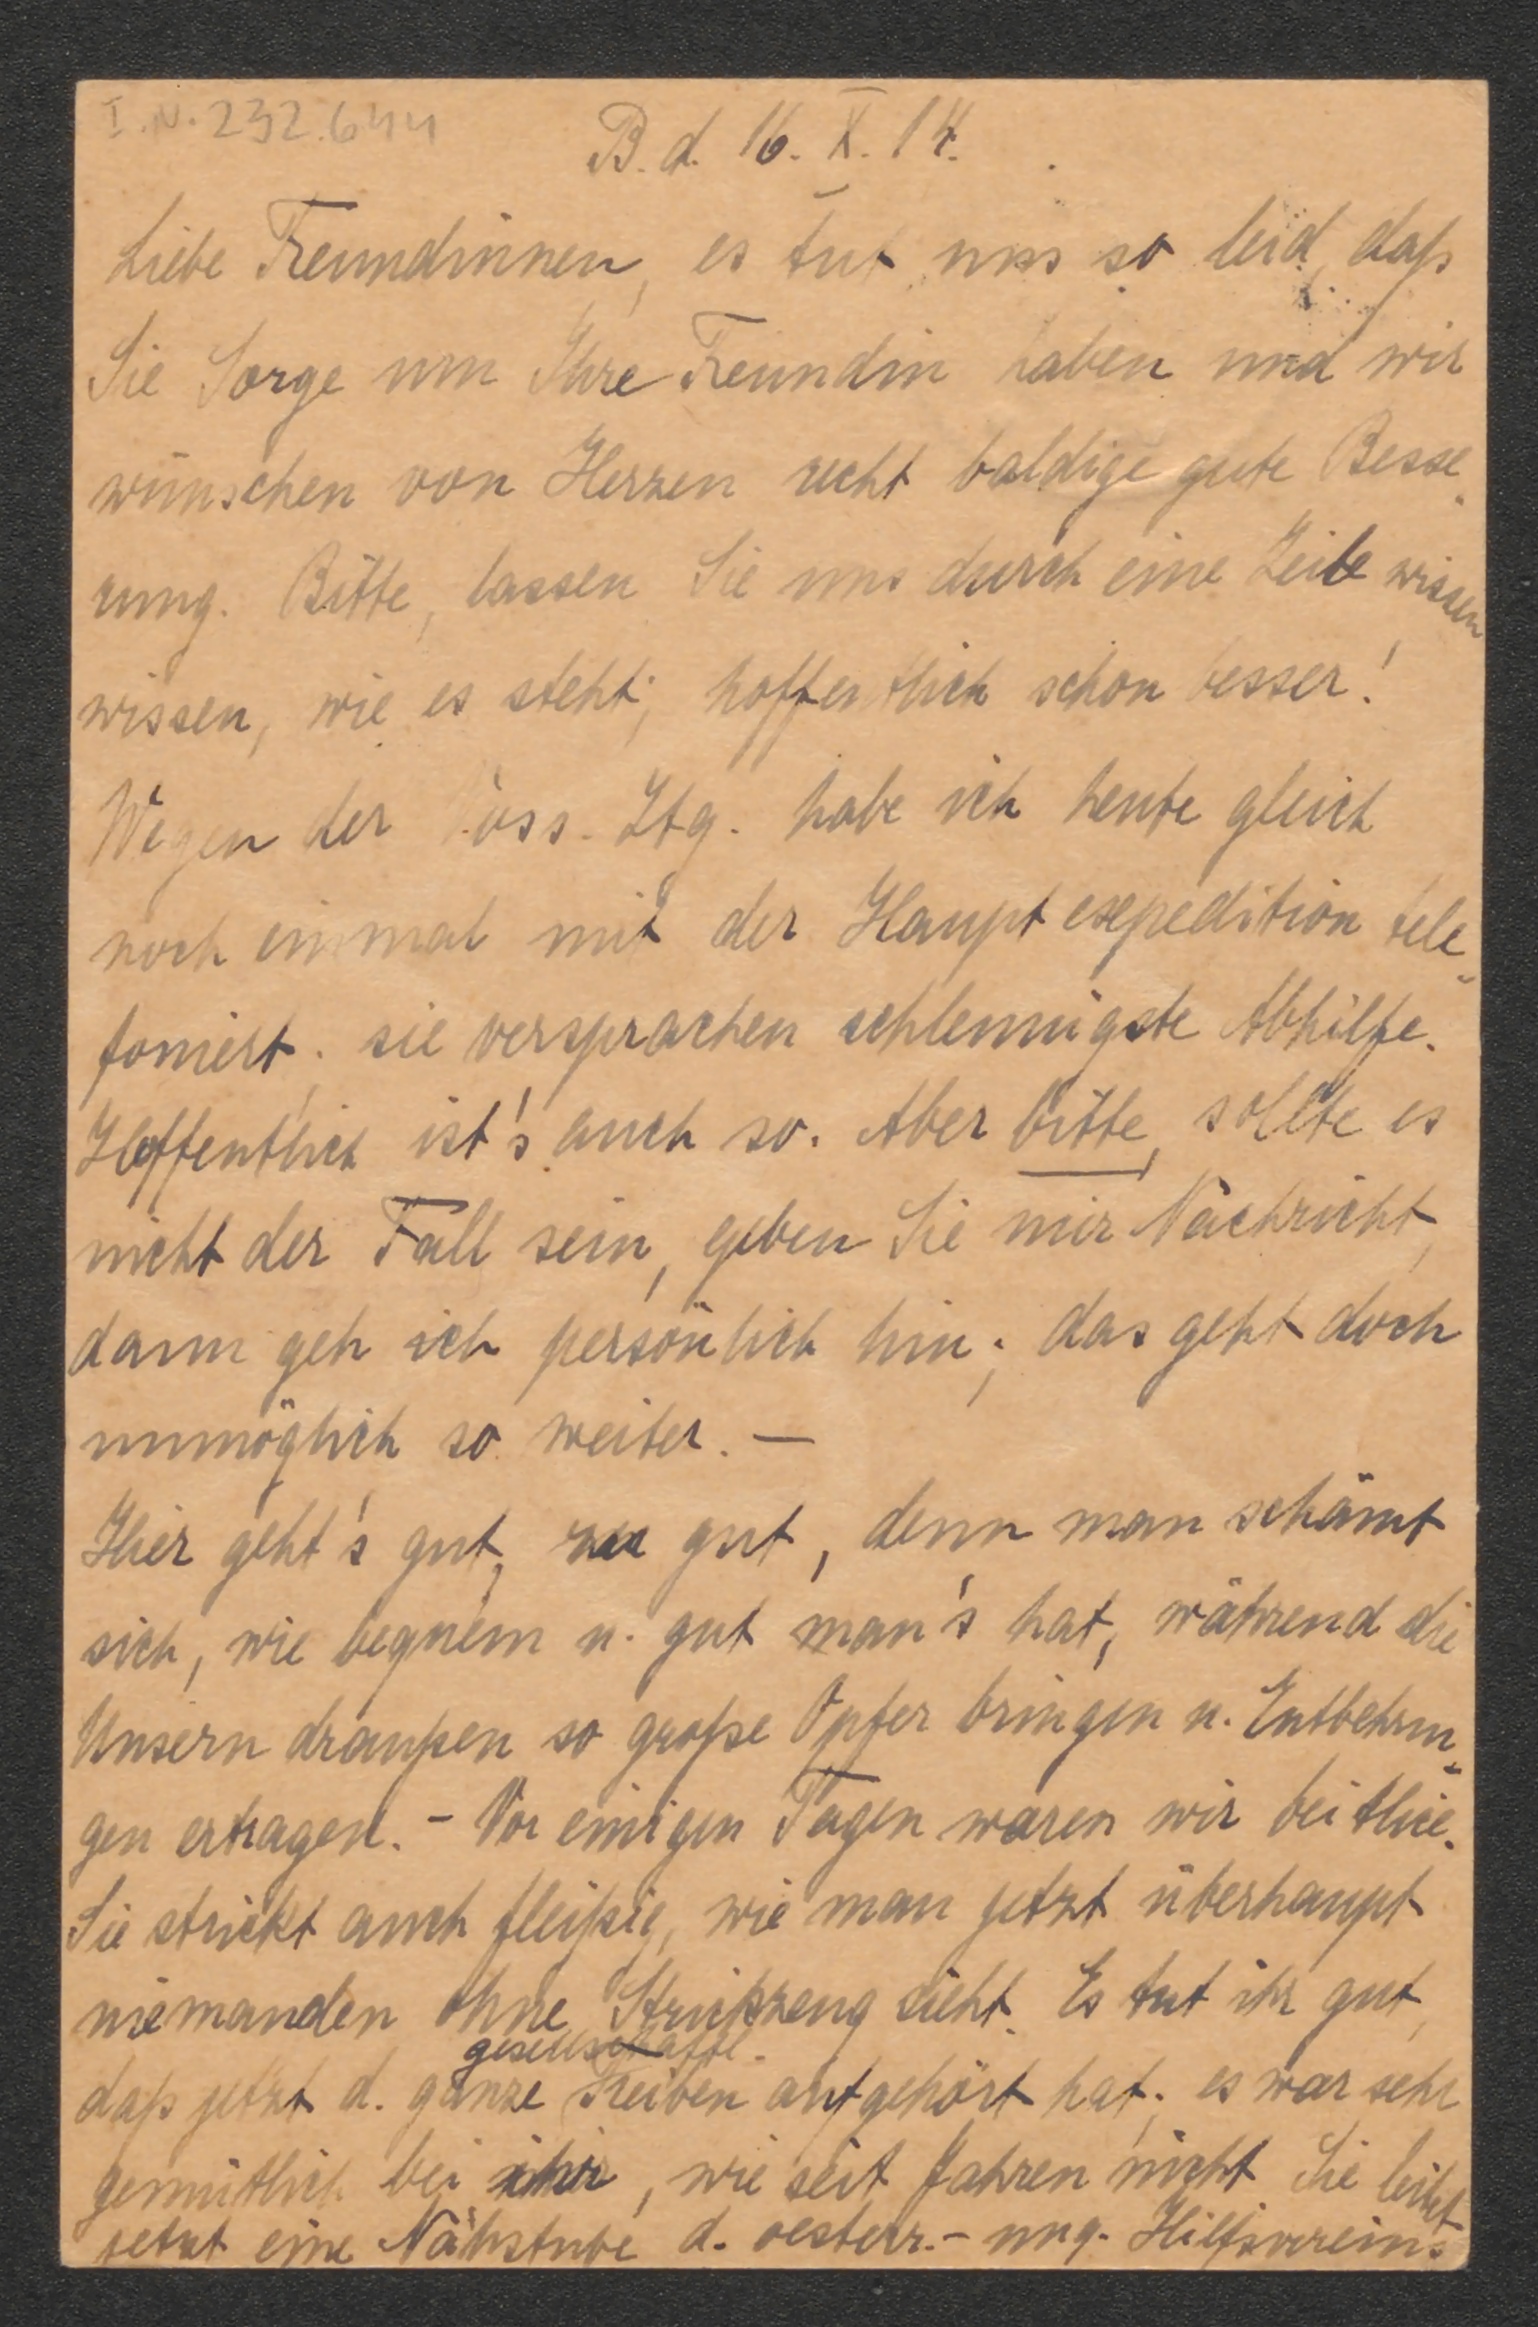 I.N. 232.644
B. d. 16. X. 14.
Liebe Freundinnen, es tut uns so leid, daß
Sie Sorge um Ihre Freundin haben und wir
wünschen von Herzen recht baldige gute Besse-
rung. Bitte, lassen Sie uns durch eine Zeile wissen
wissen, wie es steht; hoffentlich schon besser!
Wegen der Voss. Ztg. habe ich heute gleich
noch einmal mit der Hauptexpedition tele-
foniert; sie versprachen schleunigste Abhilfe.
Hoffentlich ist's auch so. Aber bitte, sollte es
nicht der Fall sein, geben Sie mir Nachricht,
dann geh ich persönlich hin; das geht doch
unmöglich so weiter. —
Hier geht's gut, zu gut, denn man schämt
sich, wie bequem u. gut man's hat, während die
Unsern draußen so große Opfer bringen u. Entbehrun-
gen ertragen. - Vor einigen Tagen waren wir bei Alice.
Sie strickt auch fleißig, wie man jetzt überhaupt
niemanden ohne Strickzeug sieht. Es tut ihr gut,
gesellschaftl.
daß jetzt d. ganze Treiben aufgehört hat; es war sehr
gemütlich bei ihr, wie seit Jahren nicht. Sie leitet
jetzt eine Nähstube d. oesterr.- ung. Hilfsvereins